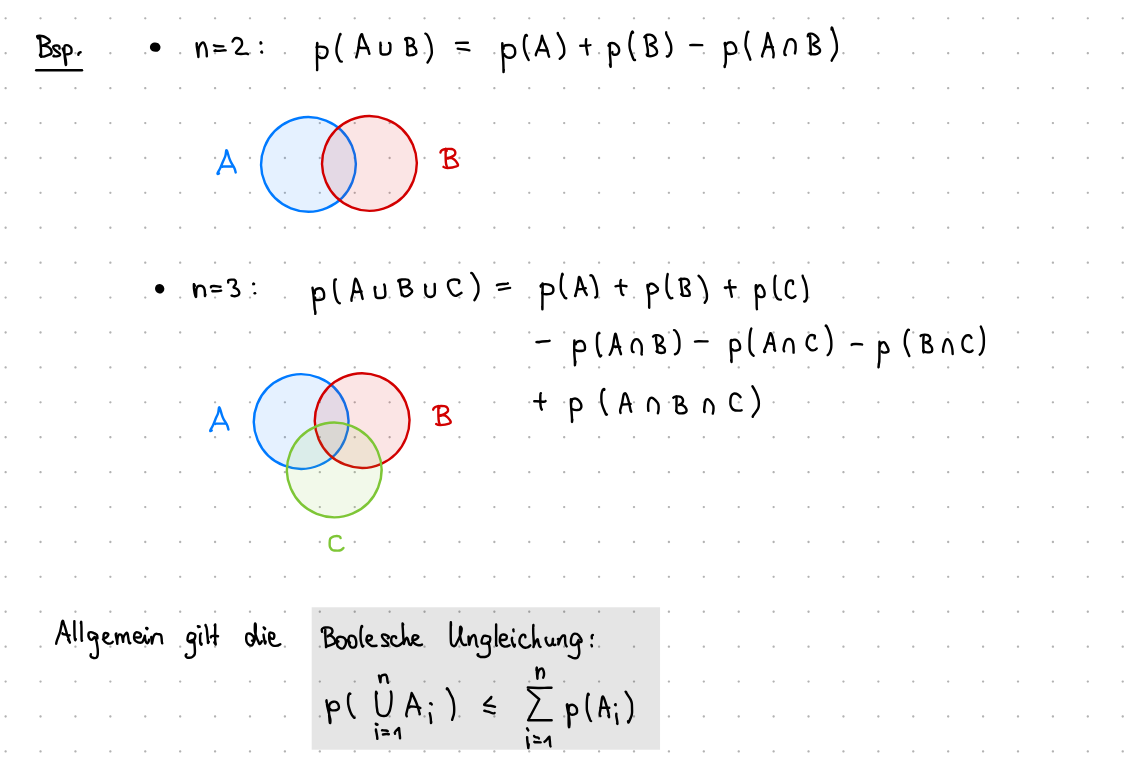 Bsp. • n=2: p(A∪B) = p(A) + p(B) − p(A∩B)
A B
• n=3: p(A∪B∪C) = p(A) + p(B) + p(C)
− p(A∩B) − p(A∩C) − p(B∩C)
+ p(A∩B∩C)
A B
C
Allgemein gilt die Boolesche Ungleichung:
p(⋃_{i=1}^{n} A_i) ≤ ∑_{i=1}^{n} p(A_i)